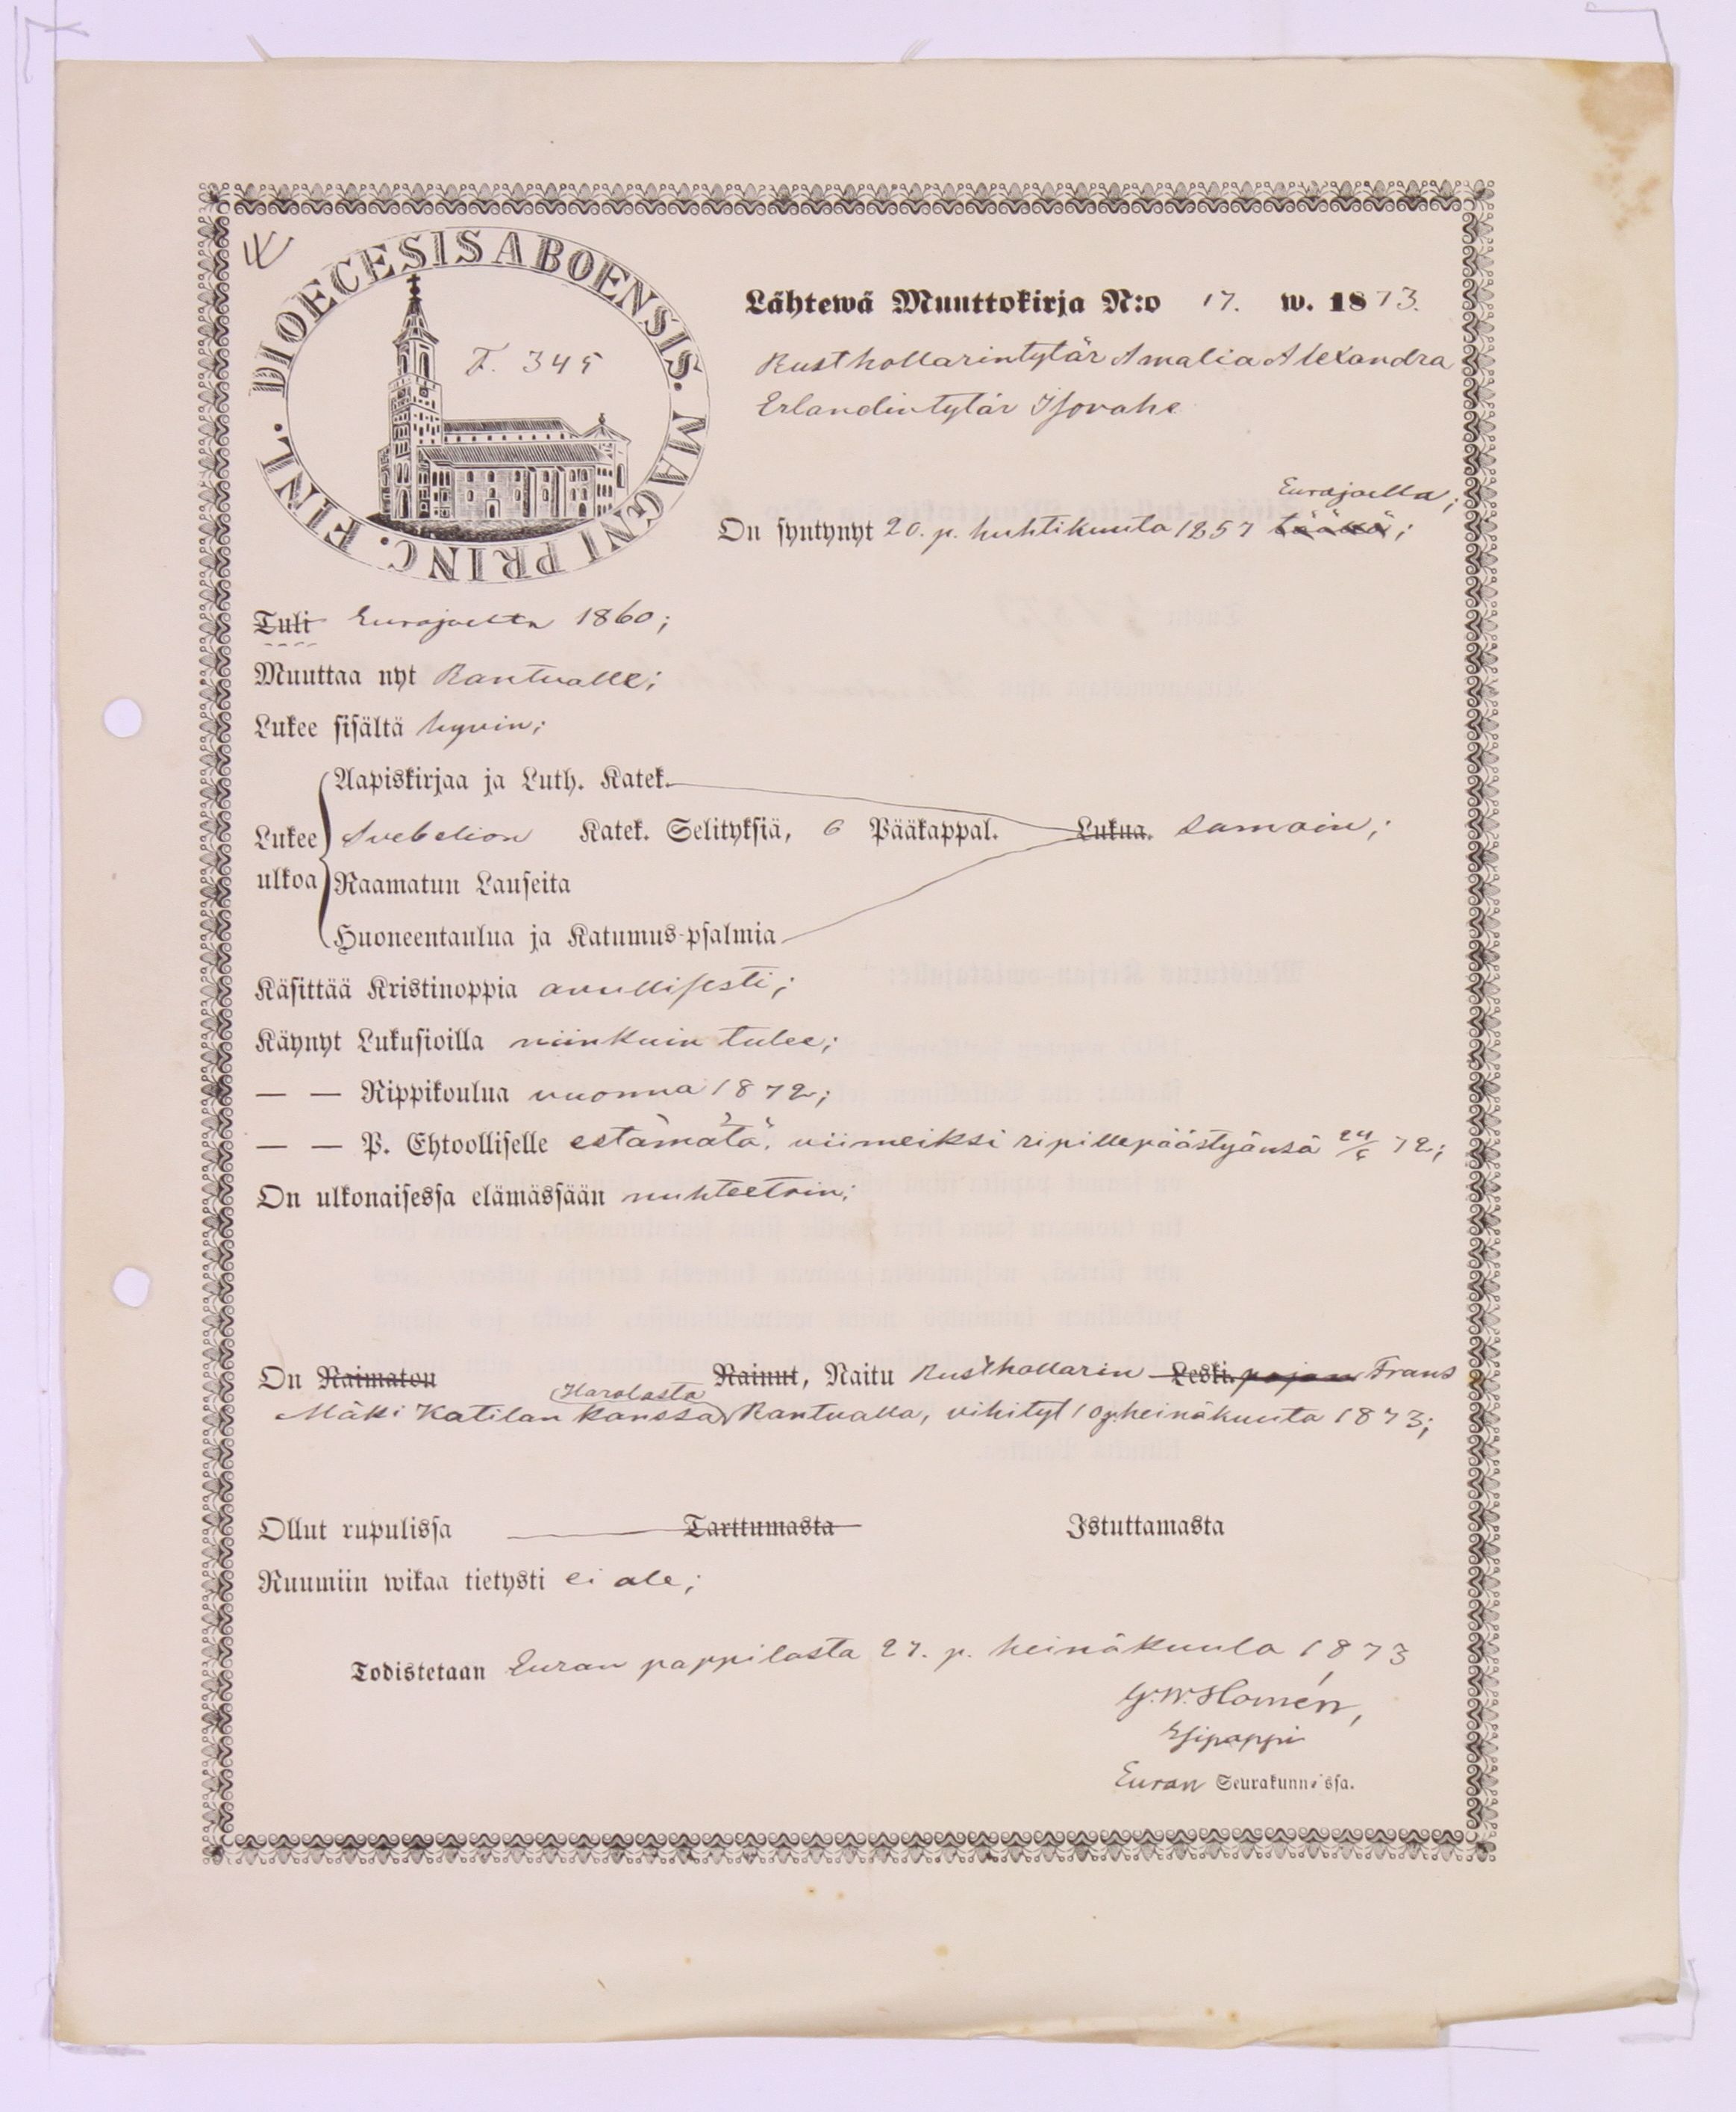 DIOECESIS ABOENSIS. MAGNI PRINC. FINL.
F. 345
Lähtewä Muuttokirja N:o 17. w. 1873.
Rusthollarintytär Amalia Alexandra
Erlandintytär Isovahe
Eurajoella;
On syntynyt 20. p. huhtikuuta 1857 täällä;
Tuli Eurajoelta 1860;
Muuttaa nyt Kantvalle;
Lukee sisältä hyvin;
Aapiskirjaa ja Luth. Katek.
Lukee ulkoa Svebelion Katek. Selityksiä, 6 Pääkappal. Lukua. samoin;
Raamatun Lauseita
Huoneentaulua ja Katumus-psalmia
Käsittää Kristinoppia avullisesti;
Käynyt Lukusioilla niinkuin tulee;
— — Rippikoulua vuonna 1872;
— — P. Ehtoolliselle estämätä, viimeiksi ripillepäästyänsä 72;
On ulkonaisessa elämässään nuhteetoin;
On Naimaton Nainut, Naitu Rusthollarin Leski pojan Frans
Harolasta
Mäki Katilan kanssa Kantvalla, vihityt 10 p. heinäkuuta 1873;
Ollut rupulissa Tarttumasta Istuttamasta
Ruumiin wikaa tietysti ei ole;
Todistetaan Euran pappilasta 27. p. heinäkuula 1873
G. W. Homén,
Esipappi
Euran Seurakunnassa.